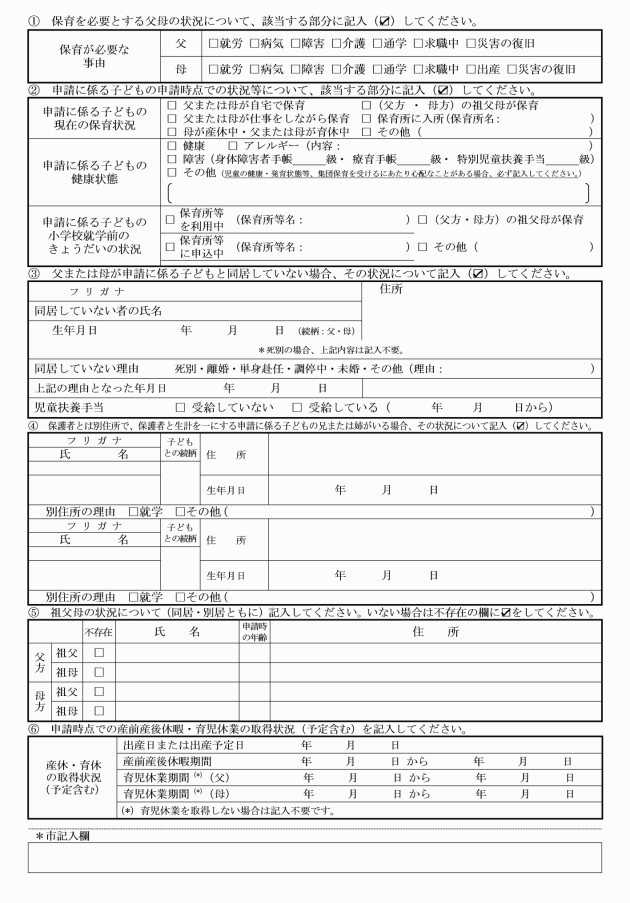 ① 保育を必要とする父母の状況について、該当する部分に記入（☑）してください。
保育が必要な
事由
父 □就労 □病気 □障害 □介護 □通学 □求職中 □災害の復旧
母 □就労 □病気 □障害 □介護 □通学 □求職中 □出産 □災害の復旧
② 申請に係る子どもの申請時点での状況等について、該当する部分に記入（☑）してください。
申請に係る子どもの
現在の保育状況
□ 父または母が自宅で保育 □（父方・母方）の祖父母が保育
□ 父または母が仕事をしながら保育 □ 保育所に入所（保育所名： ）
□ 母が産休中・父または母が育休中 □ その他（ ）
申請に係る子どもの
健康状態
□ 健康 □ アレルギー（内容： ）
□ 障害（身体障害者手帳＿＿＿級・療育手帳＿＿＿級・特別児童扶養手当＿＿＿級）
□ その他（児童の健康・発育状態等、集団保育を受けるにあたり心配なことがある場合、必ず記入してください。）
申請に係る子どもの
小学校就学前の
きょうだいの状況
□ 保育所等を利用中 （保育所等名： ） □（父方・母方）の祖父母が保育
□ 保育所等に申込中 （保育所等名： ） □ その他（ ）
③ 父または母が申請に係る子どもと同居していない場合、その状況について記入（☑）してください。
フリガナ 住所
同居していない者の氏名
生年月日 年 月 日 （続柄：父・母）
＊死別の場合、上記内容は記入不要。
同居していない理由 死別・離婚・単身赴任・調停中・未婚・その他（理由： ）
上記の理由となった年月日 年 月 日
児童扶養手当 □ 受給していない □ 受給している（ 年 月 日から）
④ 保護者とは別住所で、保護者と生計を一にする申請に係る子どもの兄または姉がいる場合、その状況について記入（☑）してください。
フリガナ 子どもとの続柄 住所
氏 名
生年月日 年 月 日
別住所の理由 □就学 □その他（ ）
フリガナ 子どもとの続柄 住所
氏 名
生年月日 年 月 日
別住所の理由 □就学 □その他（ ）
⑤ 祖父母の状況について（同居・別居ともに）記入してください。いない場合は不存在の欄に☑をしてください。
不存在 氏 名 申請時の年齢 住 所
父方 祖父 □
祖母 □
母方 祖父 □
祖母 □
⑥ 申請時点での産前産後休暇・育児休業の取得状況（予定含む）を記入してください。
産休・育休
の取得状況
（予定含む）
出産日または出産予定日 年 月 日
産前産後休暇期間 年 月 日 から 年 月 日
育児休業期間（*）（父） 年 月 日 から 年 月 日
育児休業期間（*）（母） 年 月 日 から 年 月 日
（*）育児休業を取得しない場合は記入不要です。
＊市記入欄